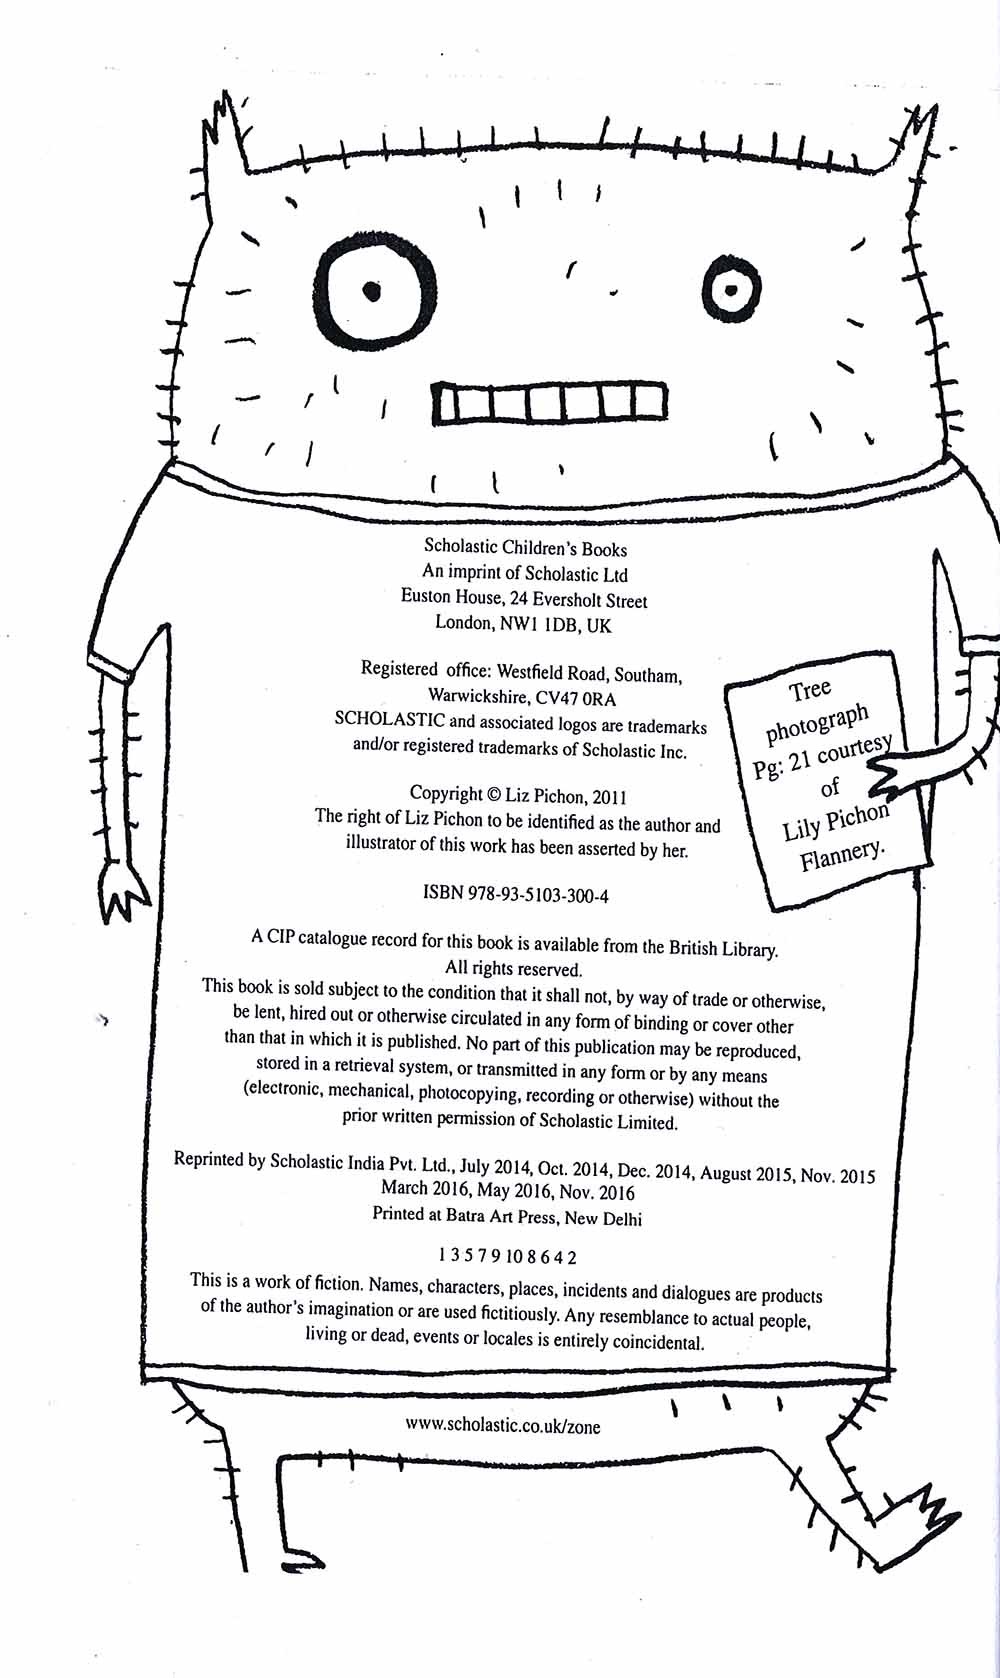 Scholastic Children's Books
An imprint of Scholastic Ltd
Euston House, 24 Eversholt Street
London, NW1 1DB, UK
Registered office: Westfield Road, Southam,
Warwickshire, CV47 0RA
SCHOLASTIC and associated logos are trademarks
and/or registered trademarks of Scholastic Inc.
Tree
photograph
Pg: 21 courtesy
of
Lily Pichon
Flannery.
Copyright © Liz Pichon, 2011
The right of Liz Pichon to be identified as the author and
illustrator of this work has been asserted by her.
ISBN 978-93-5103-300-4
A CIP catalogue record for this book is available from the British Library.
All rights reserved.
This book is sold subject to the condition that it shall not, by way of trade or otherwise,
be lent, hired out or otherwise circulated in any form of binding or cover other
than that in which it is published. No part of this publication may be reproduced,
stored in a retrieval system, or transmitted in any form or by any means
(electronic, mechanical, photocopying, recording or otherwise) without the
prior written permission of Scholastic Limited.
Reprinted by Scholastic India Pvt. Ltd., July 2014, Oct. 2014, Dec. 2014, August 2015, Nov. 2015
March 2016, May 2016, Nov. 2016
Printed at Batra Art Press, New Delhi
1 3 5 7 9 10 8 6 4 2
This is a work of fiction. Names, characters, places, incidents and dialogues are products
of the author's imagination or are used fictitiously. Any resemblance to actual people,
living or dead, events or locales is entirely coincidental.
www.scholastic.co.uk/zone